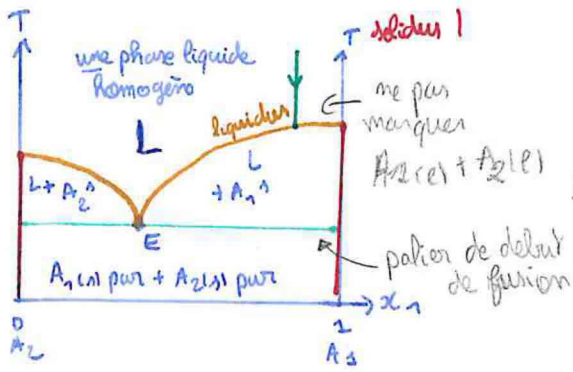 T
T
solidus 1
une phase liquide
homogène
L
liquidus
ne pas
marquer
A₁(l) + A₂(l)
L + A₂ˢ
L
+ A₁ˢ
E
palier de début
de fusion
A₁(s) pur + A₂(s) pur
x₁
0
1
A₂
A₁